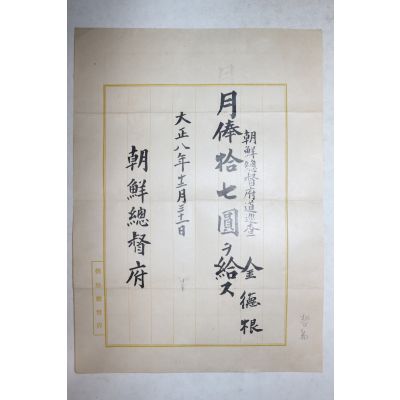 朝鮮總督府道巡査
金德根
月俸拾七圓ヲ給ス
大正八年十二月三十一日
朝鮮總督府